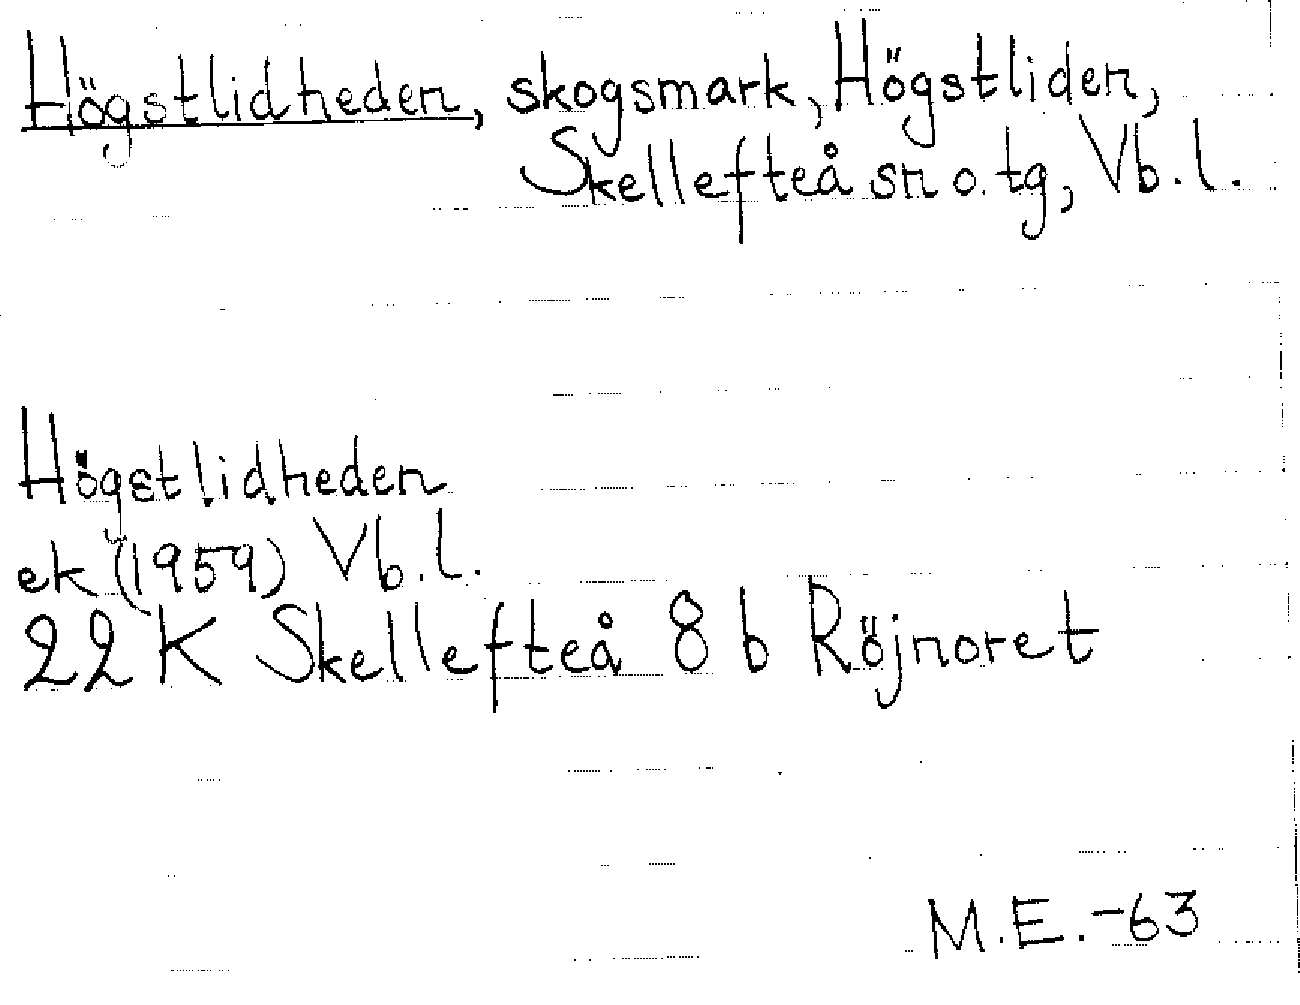 Högstlidheden, skogsmark, Högstliden,
Skellefteå sn o. tg, Vb. l.
Högstlidheden
ek (1959) Vb. l.
22 K Skellefteå 8 b Röjnoret
M.E.-63